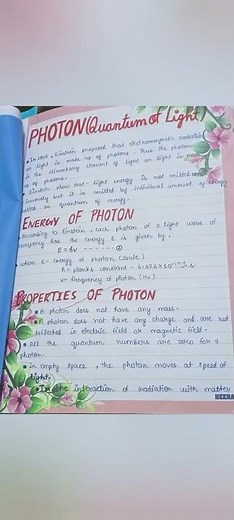 PHOTON (Quantum of Light)
• In 1905, Einstein proposed that electromagnetic radiation
or light is made up of photons. Thus the photon
is the elementary element of light or light is
up of photons.
Einstein show that light energy is not emitted
but it is emitted by individual amount of energy
called as quantum of energy.
ENERGY OF PHOTON
• According to Einstein, each photon of a light wave of
frequency has the energy E is given by,
E = hv
where E = energy of photon (Joule)
h = planks constant = 6.626 × 10
v = frequency of photon (Hz)
PROPERTIES OF PHOTON
• A photon does not have any mass.
• A photon does not have any charge and are not
deflected in electric field or magnetic field.
• All the quantum numbers are zero for a
photon.
• In empty space, the photon moves at speed of
light.
• In the interaction of radiation with matter